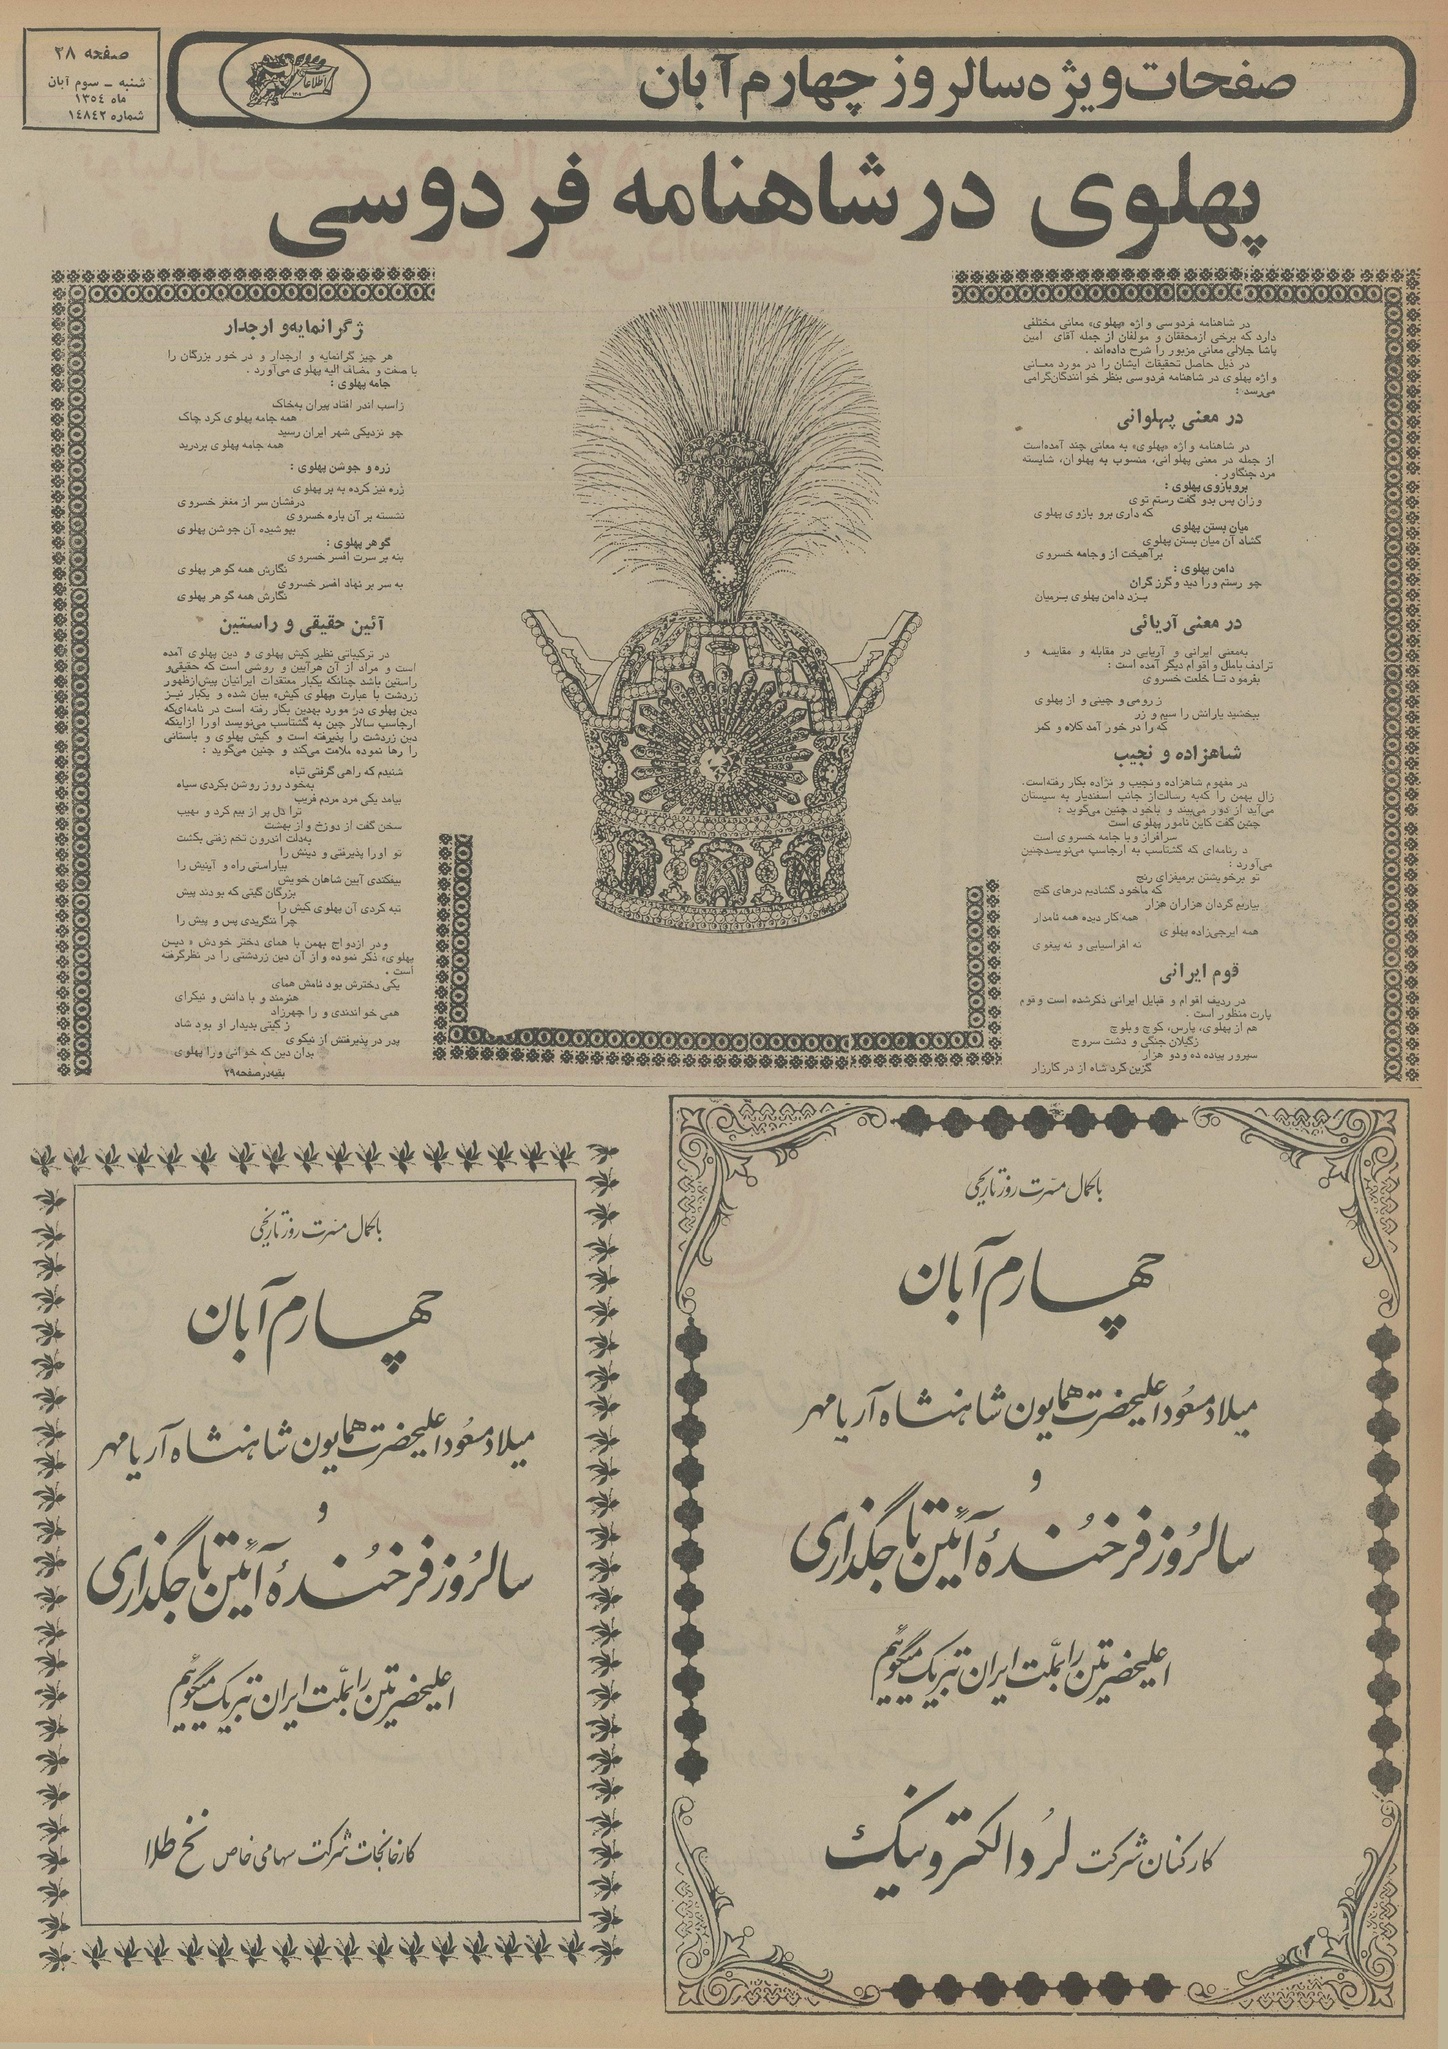 صفحه ۲۸
شنبه ـ سوم آبان
ماه ۱۳۵٤
شماره ۱٤۸٤۲
اطلاعات
صفحات ویژه سالروز چهارم آبان
پهلوی در شاهنامه فردوسی
در شاهنامه فردوسی واژه «پهلوی» معانی مختلفی
دارد که برخی از محققان و مولفان از جمله آقای امین
پاشا جلالی معانی مزبور را شرح داده‌اند .
در ذیل حاصل تحقیقات ایشان را در مورد معانی
واژه پهلوی در شاهنامه فردوسی بنظر خوانندگان گرامی
می‌رسد :
در معنی پهلوانی
در شاهنامه واژه «پهلوی» به معانی چند آمده‌است
از جمله در معنی پهلوانی، منسوب به پهلوان، شایسته
مرد جنگاور .
برو بازوی پهلوی :
وزان پس بدو گفت رستم توی
که داری برو بازوی پهلوی
میان بستن پهلوی
گشاد آن میان بستن پهلوی
برآهیخت از و جامه خسروی
دامن پهلوی :
چو رستم ورا دید و گرز گران
بزد دامن پهلوی برمیان
در معنی آریائی
به‌معنی ایرانی و آریایی در مقابله و مقایسه و
ترادف باملل و اقوام دیگر آمده است :
بفرمود تا خلعت خسروی
ز رومی و چینی و از پهلوی
ببخشید یارانش را سیم و زر
که را در خور آمد کلاه و کمر
شاهزاده و نجیب
در مفهوم شاهزاده و نجیب و نژاده بکار رفته‌است.
زال بهمن را که به رسالت از جانب اسفندیار به سیستان
می‌آید از دور می‌بیند و باخود چنین می‌گوید :
چنین گفت کاین نامور پهلوی است
سرافراز و با جامه خسروی است
در نامه‌ای که گشتاسب به ارجاسب می‌نویسد چنین
می‌آورد :
تو برخویشتن برمیفزای رنج
که ماخود گشادیم درهای گنج
بیاریم گردان هزاران هزار
همه کار دیده همه نامدار
همه ایرجی‌زاده پهلوی
نه افراسیابی و نه یبغوی
قوم ایرانی
در ردیف اقوام و قبایل ایرانی ذکر شده است و قوم
پارت منظور است .
هم از پهلوی، پارس، کوچ و بلوچ
ز گیلان جنگی و دشت سروچ
سپرور پیاده ده و دو هزار
گزین کرد شاه از در کارزار
ژگرانمایه و ارجدار
هر چیز گرانمایه و ارجدار و در خور بزرگان را
با صفت و مضاف الیه پهلوی می‌آورد .
جامه پهلوی :
ز اسب اندر افتاد پیران به‌خاک
همه جامه پهلوی کرد چاک
چو نزدیکی شهر ایران رسید
همه جامه پهلوی بردرید
زره و جوشن پهلوی :
زره نیز کرده به بر پهلوی
درفشان سر از مغفر خسروی
نشسته بر آن باره خسروی
بپوشیده آن جوشن پهلوی
گوهر پهلوی :
بنه بر سرت افسر خسروی
نگارش همه گوهر پهلوی
به سر بر نهاد افسر خسروی
نگارش همه گوهر پهلوی
آئین حقیقی و راستین
در ترکیباتی نظیر کیش پهلوی و دین پهلوی آمده
است و مراد از آن هرآیین و روشی است که حقیقی و
راستین باشد چنانکه یکبار معتقدات ایرانیان پیش از ظهور
زردشت با عبارت «پهلوی کیش» بیان شده و یکبار نیز
دین پهلوی در مورد بهدین بکار رفته است در نامه‌ای که
ارجاسب سالار چین به گشتاسب می‌نویسد او را از اینکه
دین زردشت را پذیرفته است و کیش پهلوی و باستانی
را رها نموده ملامت می‌کند و چنین می‌گوید :
شنیدم که راهی گرفتی تباه
به‌خود روز روشن بکردی سیاه
بیامد یکی مرد مردم فریب
ترا دل پر از بیم کرد و نهیب
سخن گفت از دوزخ و از بهشت
به‌دلت اندرون تخم زفتی بکشت
تو او را پذیرفتی و دینش را
بیاراستی راه و آیینش را
بیفکندی آیین شاهان خویش
بزرگان گیتی که بودند پیش
تبه کردی آن پهلوی کیش را
چرا ننگریدی پس و پیش را
و در ازدواج بهمن با همای دختر خودش « دین
پهلوی» ذکر نموده و از آن دین زردشتی را در نظر گرفته
است .
یکی دخترش بود نامش همای
هنرمند و با دانش و نیکرای
همی خواندندی و را چهرزاد
ز گیتی بدیدار او بود شاد
پدر در پذیرفتش از نیکوی
بدان دین که خوانی ورا پهلوی
بقیه در صفحه ۲۹
با کمال مسرت روز تاریخی
چهارم آبان
میلاد مسعود اعلیحضرت همایون شاهنشاه آریامهر
و
سالروز فرخنده آئین تاجگذاری
اعلیحضرتین را بملت ایران تبریک میگوئیم
کارکنان شرکت لرد الکترونیک
با کمال مسرت روز تاریخی
چهارم آبان
میلاد مسعود اعلیحضرت همایون شاهنشاه آریامهر
و
سالروز فرخنده آئین تاجگذاری
اعلیحضرتین را بملت ایران تبریک میگوئیم
کارخانجات شرکت سهامی خاص نخ طلا